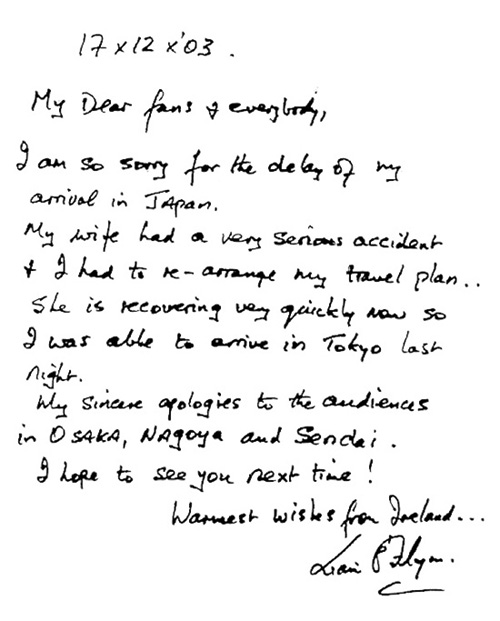 17 x 12 x '03.
My Dear fans & everybody,
I am so sorry for the delay of my
arrival in JAPAN.
My wife had a very serious accident
& I had to re-arrange my travel plan..
She is recovering very quickly now so
I was able to arrive in Tokyo last
night.
My sincere apologies to the audiences
in OSAKA, NAGOYA and Sendai.
I hope to see you next time!
Warmest wishes from Ireland...
Liam O'Flynn.